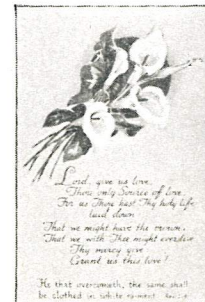 Lord, give us love
Thou only Source of love
For us Thou hast Thy holy life
laid down
That we might have the crown,
That we with Thee might
Thy mercy give
Grant us this love!
He that overcometh, the same shall
be clothed in white raiment